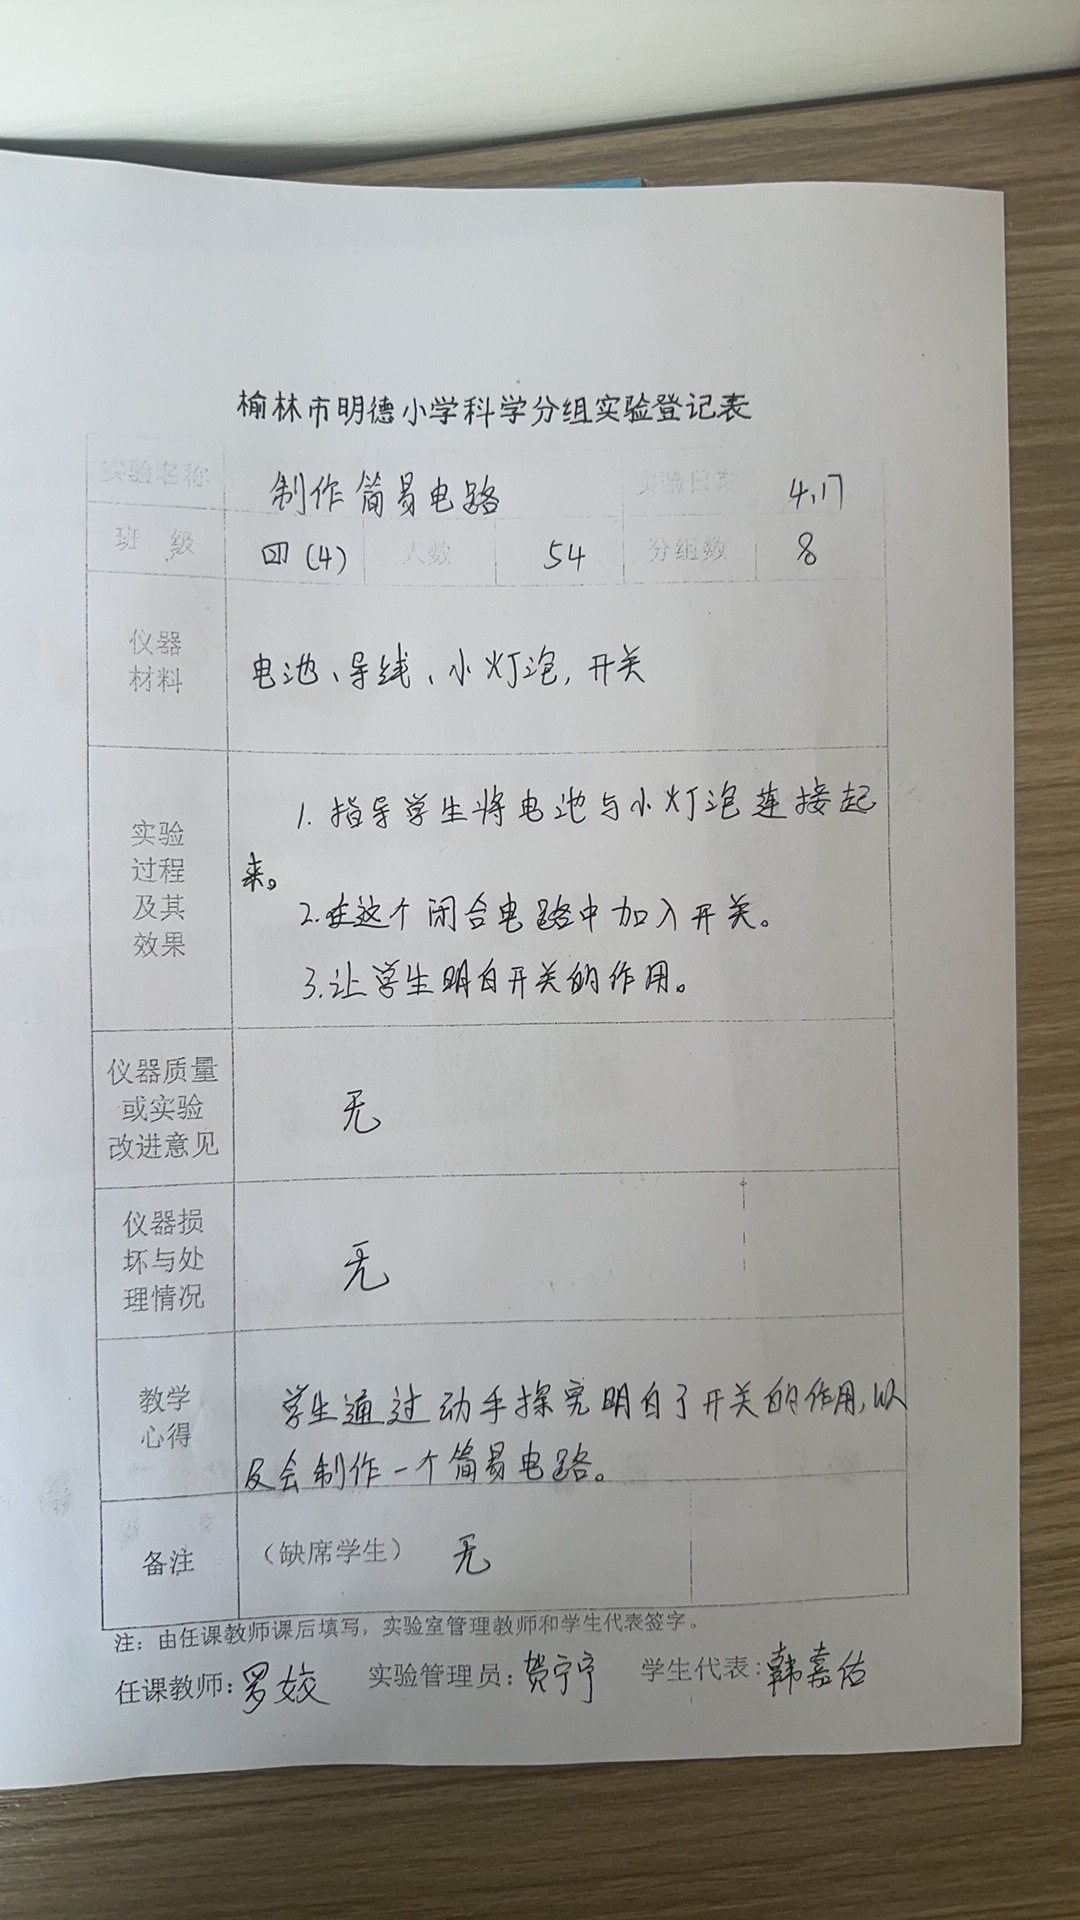 榆林市明德小学科学分组实验登记表
实验名称 制作简易电路 实验日期 4.17
班 级 四(4) 人数 54 分组数 8
仪器
材料
电池、导线、小灯泡,开关
实验
过程
及其
效果
1.指导学生将电池与小灯泡连接起
来。
2.在这个闭合电路中加入开关。
3.让学生明白开关的作用。
仪器质量
或实验
改进意见
无
仪器损
坏与处
理情况
无
教学
心得
学生通过动手探究明白了开关的作用,以
及会制作一个简易电路。
备注 (缺席学生) 无
注:由任课教师课后填写,实验室管理教师和学生代表签字。
任课教师:罗姣 实验管理员:贺宁宁 学生代表:韩嘉佑